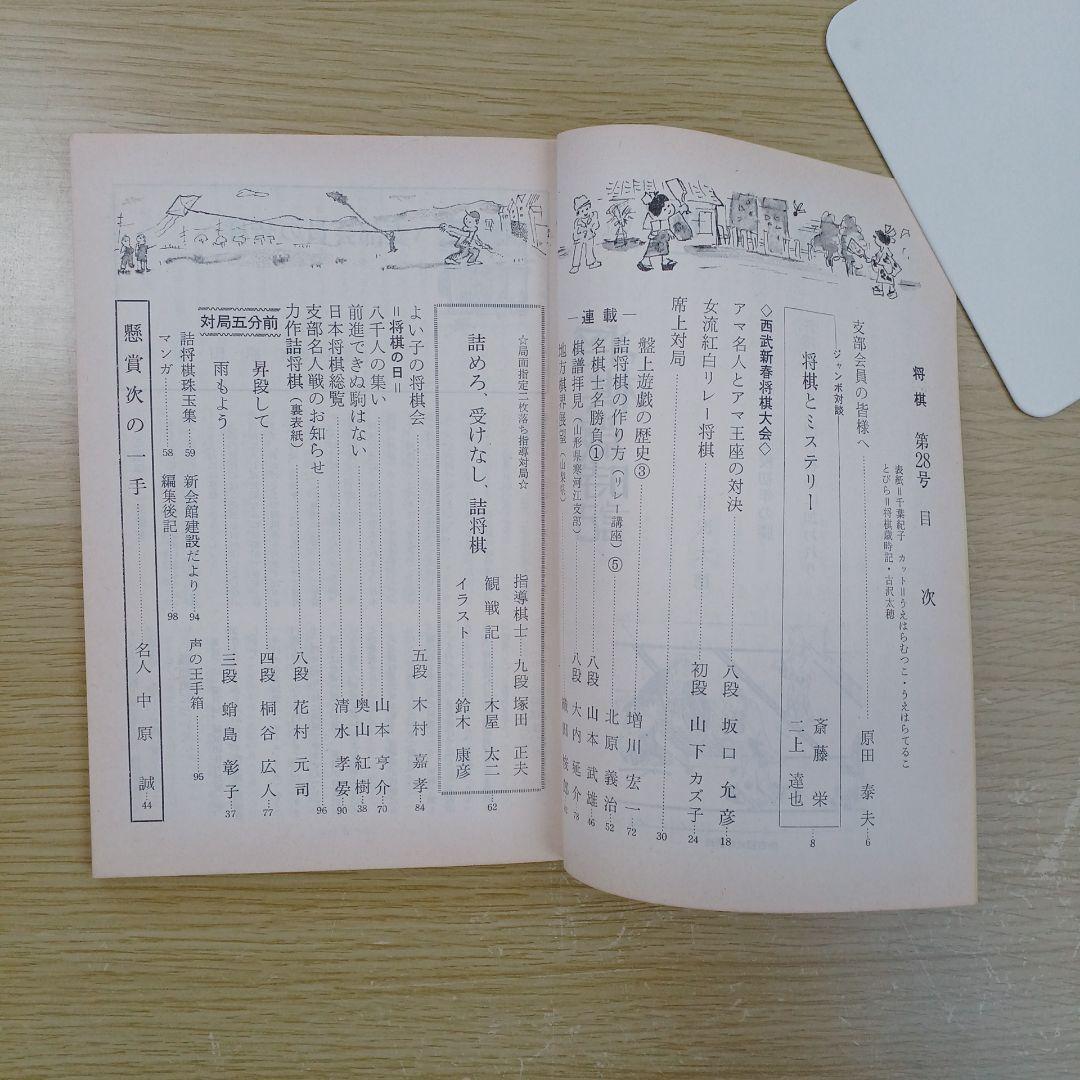 将棋 第28号 目次
表紙＝千葉紀子 カット＝うえはらむつこ・うえはらてるこ
とびら＝将棋歳時記・古沢太穂
支部会員の皆様へ……原田泰夫…6
ジャンボ対談
将棋とミステリー……斎藤栄
二上達也…8
◇西武新春将棋大会◇
アマ名人とアマ王座の対決……八段 坂口允彦…18
女流紅白リレー将棋……初段 山下カズ子…24
席上対局……30
―連載―
盤上遊戯の歴史③……増川宏一…72
詰将棋の作り方（リレー講座）⑤……北原義治…52
名棋士名勝負①……八段 山本武雄…46
棋譜拝見（山形県寒河江支部）……八段 大内延介…78
地方棋界展望（山梨県）
☆局面指定二枚落ち指導対局☆
詰めろ、受けなし、詰将棋
指導棋士…九段 塚田正夫
観戦記……木屋太二…62
イラスト……鈴木康彦
よい子の将棋会……五段 木村嘉孝…84
＝将棋の日＝
八千人の集い……山本亨介…70
前進できぬ駒はない……奥山紅樹…38
日本将棋総覧……清水孝晏…90
支部名人戦のお知らせ……96
力作詰将棋（裏表紙）……八段 花村元司
対局五分前
昇段して……四段 桐谷広人…77
雨もよう……三段 蛸島彰子…37
詰将棋珠玉集……59 新会館建設だより…94 声の王手箱……95
マンガ……58 編集後記……98
懸賞次の一手……名人 中原誠…44